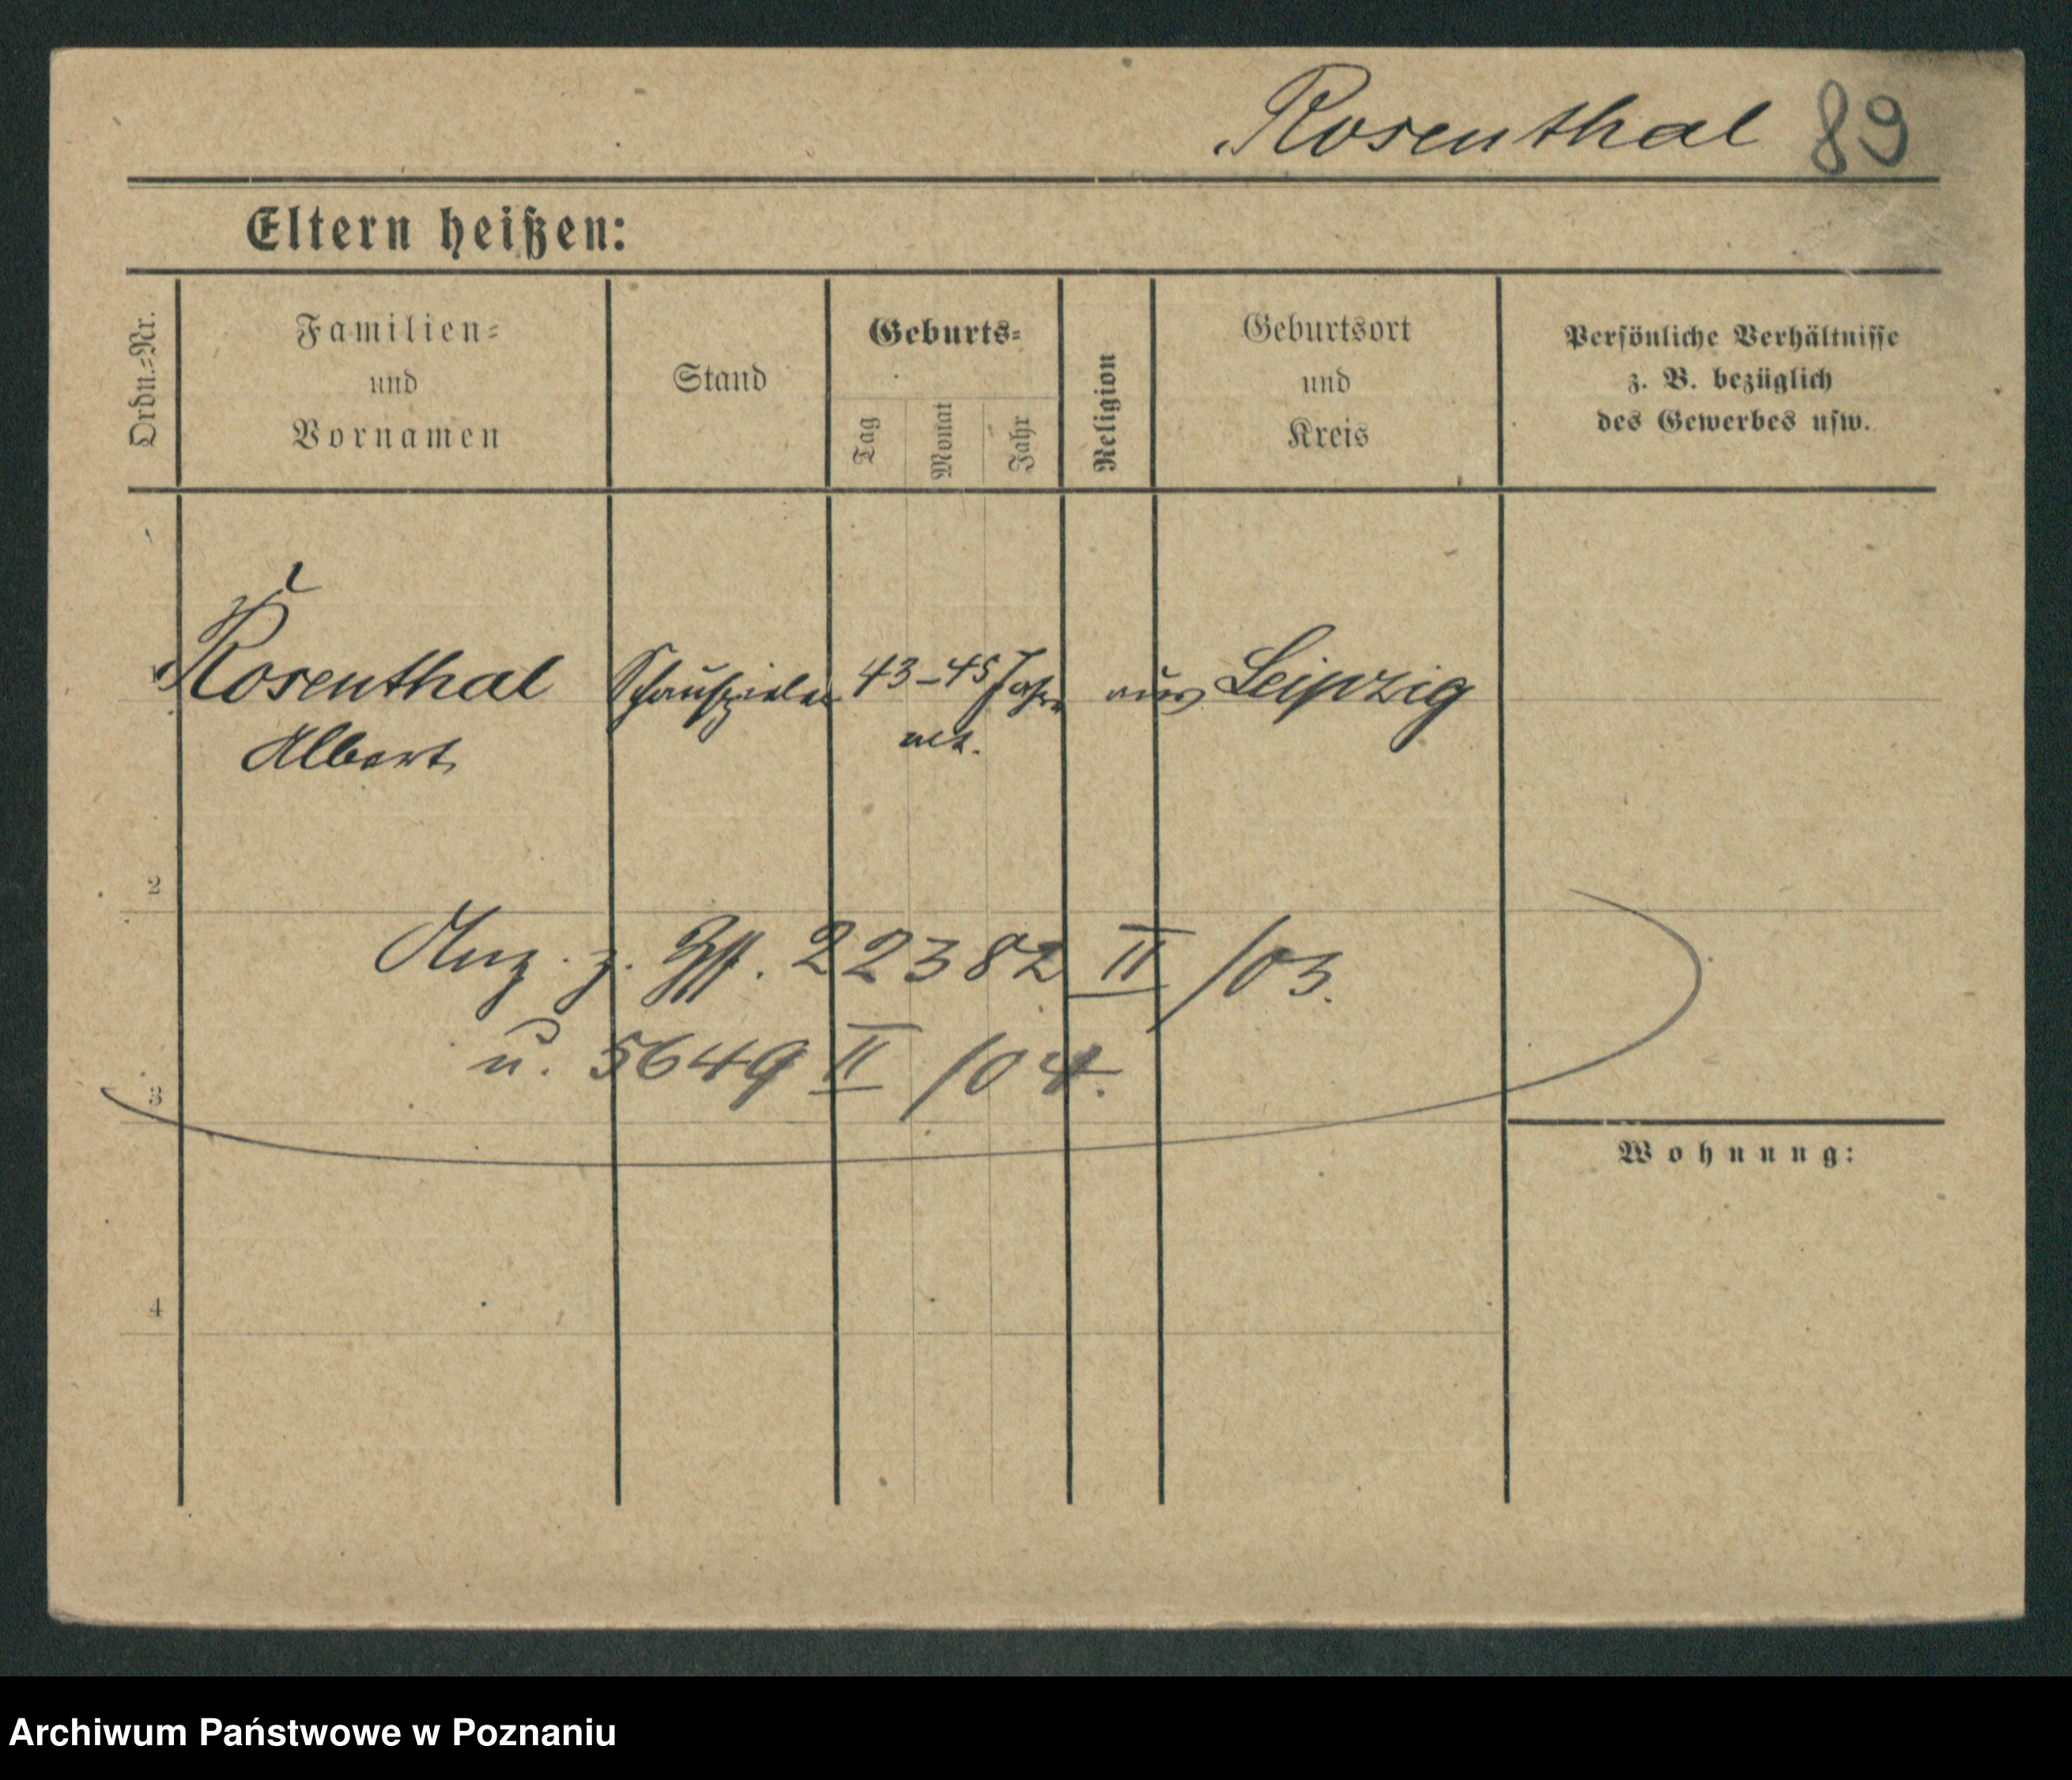 Rosenthal 89
Eltern heißen:
Ordn.=Nr.
Familien=
und
Vornamen
Stand
Geburts=
Tag
Monat
Jahr
Religion
Geburtsort
und
Kreis
Persönliche Verhältnisse
z. B. bezüglich
des Gewerbes usw.
Rosenthal Schauspieler 43-45 Jahre aus Leipzig
Albert alt.
2
Anz. z. 22382 II /03.
u. 5649 II /04.
3
Wohnung:
4
Archiwum Państwowe w Poznaniu